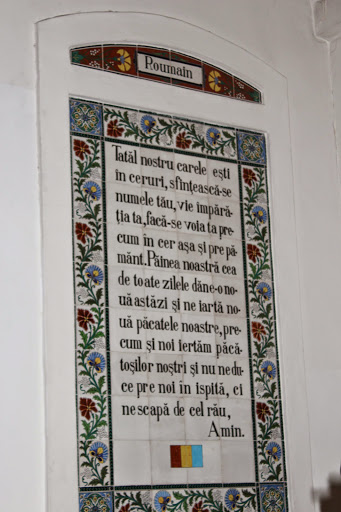 Roumain
Tatăl nostru carele ești
în ceruri, sfințească-se
numele tău, vie împără-
ția ta, facă-se voia ta pre
cum în cer așa și pre pă-
mânt. Pâinea noastră cea
de toate zilele dăne-o no-
uă astăzi și ne iartă no-
uă păcatele noastre, pre-
cum și noi iertăm păcă-
toșilor noștri și nu ne du-
ce pre noi în ispită, ci
ne scapă de cel rău,
Amin.